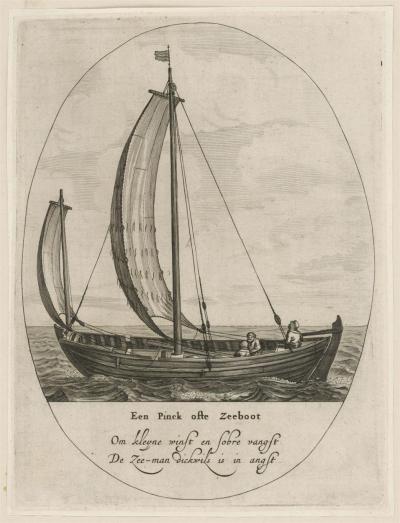 Een Pinck ofte Zeeboot
Om kleyne winst en sobre vangst
De Zee-man dickwils is in angst